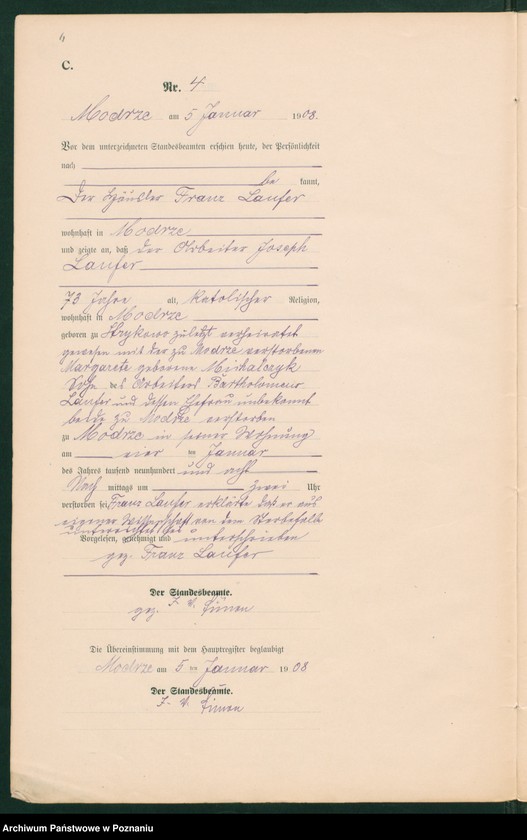 4
C.
Nr. 4
Modrze am 5 Januar 1908.
Vor dem unterzeichneten Standesbeamten erschien heute, der Persönlichkeit
nach
be kannt,
Der Häusler Franz Laufer
wohnhaft in Modrze
und zeigte an, daß der Arbeiter Joseph
Laufer
73 Jahre alt, katolischer Religion,
wohnhaft in Modrze
geboren zu Strykowo zuletzt verheiratet
gewesen mit der zu Modrze verstorbenen
Margareta geborene Michalczyk
Sohn des Arbeiters Bartholomeus
Laufer und dessen Ehefrau unbekannt
beide zu Modrze verstorben
zu Modrze in seiner Wohnung
am vier ten Januar
des Jahres tausend neunhundert und acht
Nach mittags um zwei Uhr
verstorben sei Franz Laufer erklärte daß er aus
eigener Wissenschaft von dem Sterbefalle
unterrichtet sei
Vorgelesen, genehmigt und unterschrieben
gez. Franz Laufer
Der Standesbeamte.
gez. I. V.
Die Übereinstimmung mit dem Hauptregister beglaubigt
Modrze am 5 ten Januar 1908
Der Standesbeamte.
I. V.
Archiwum Państwowe w Poznaniu